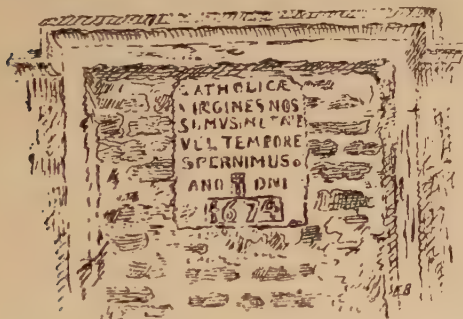 CATHOLICÆ
VIRGINES NOS
SUMVS
VEL TEMPORE
SPERNIMUS
ANO DNI
1674